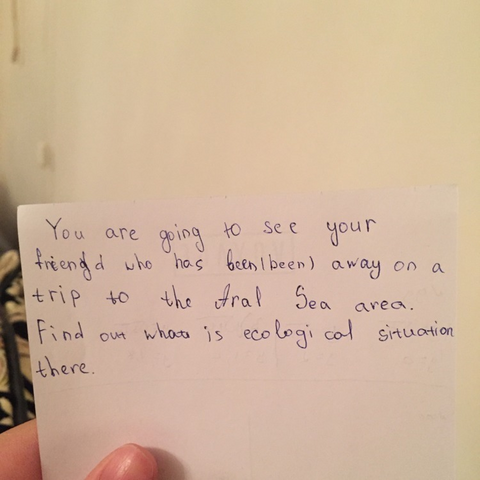 You are going to see your
friend who has been (been) away on a
trip to the Aral Sea area.
Find out what is ecological situation
there.